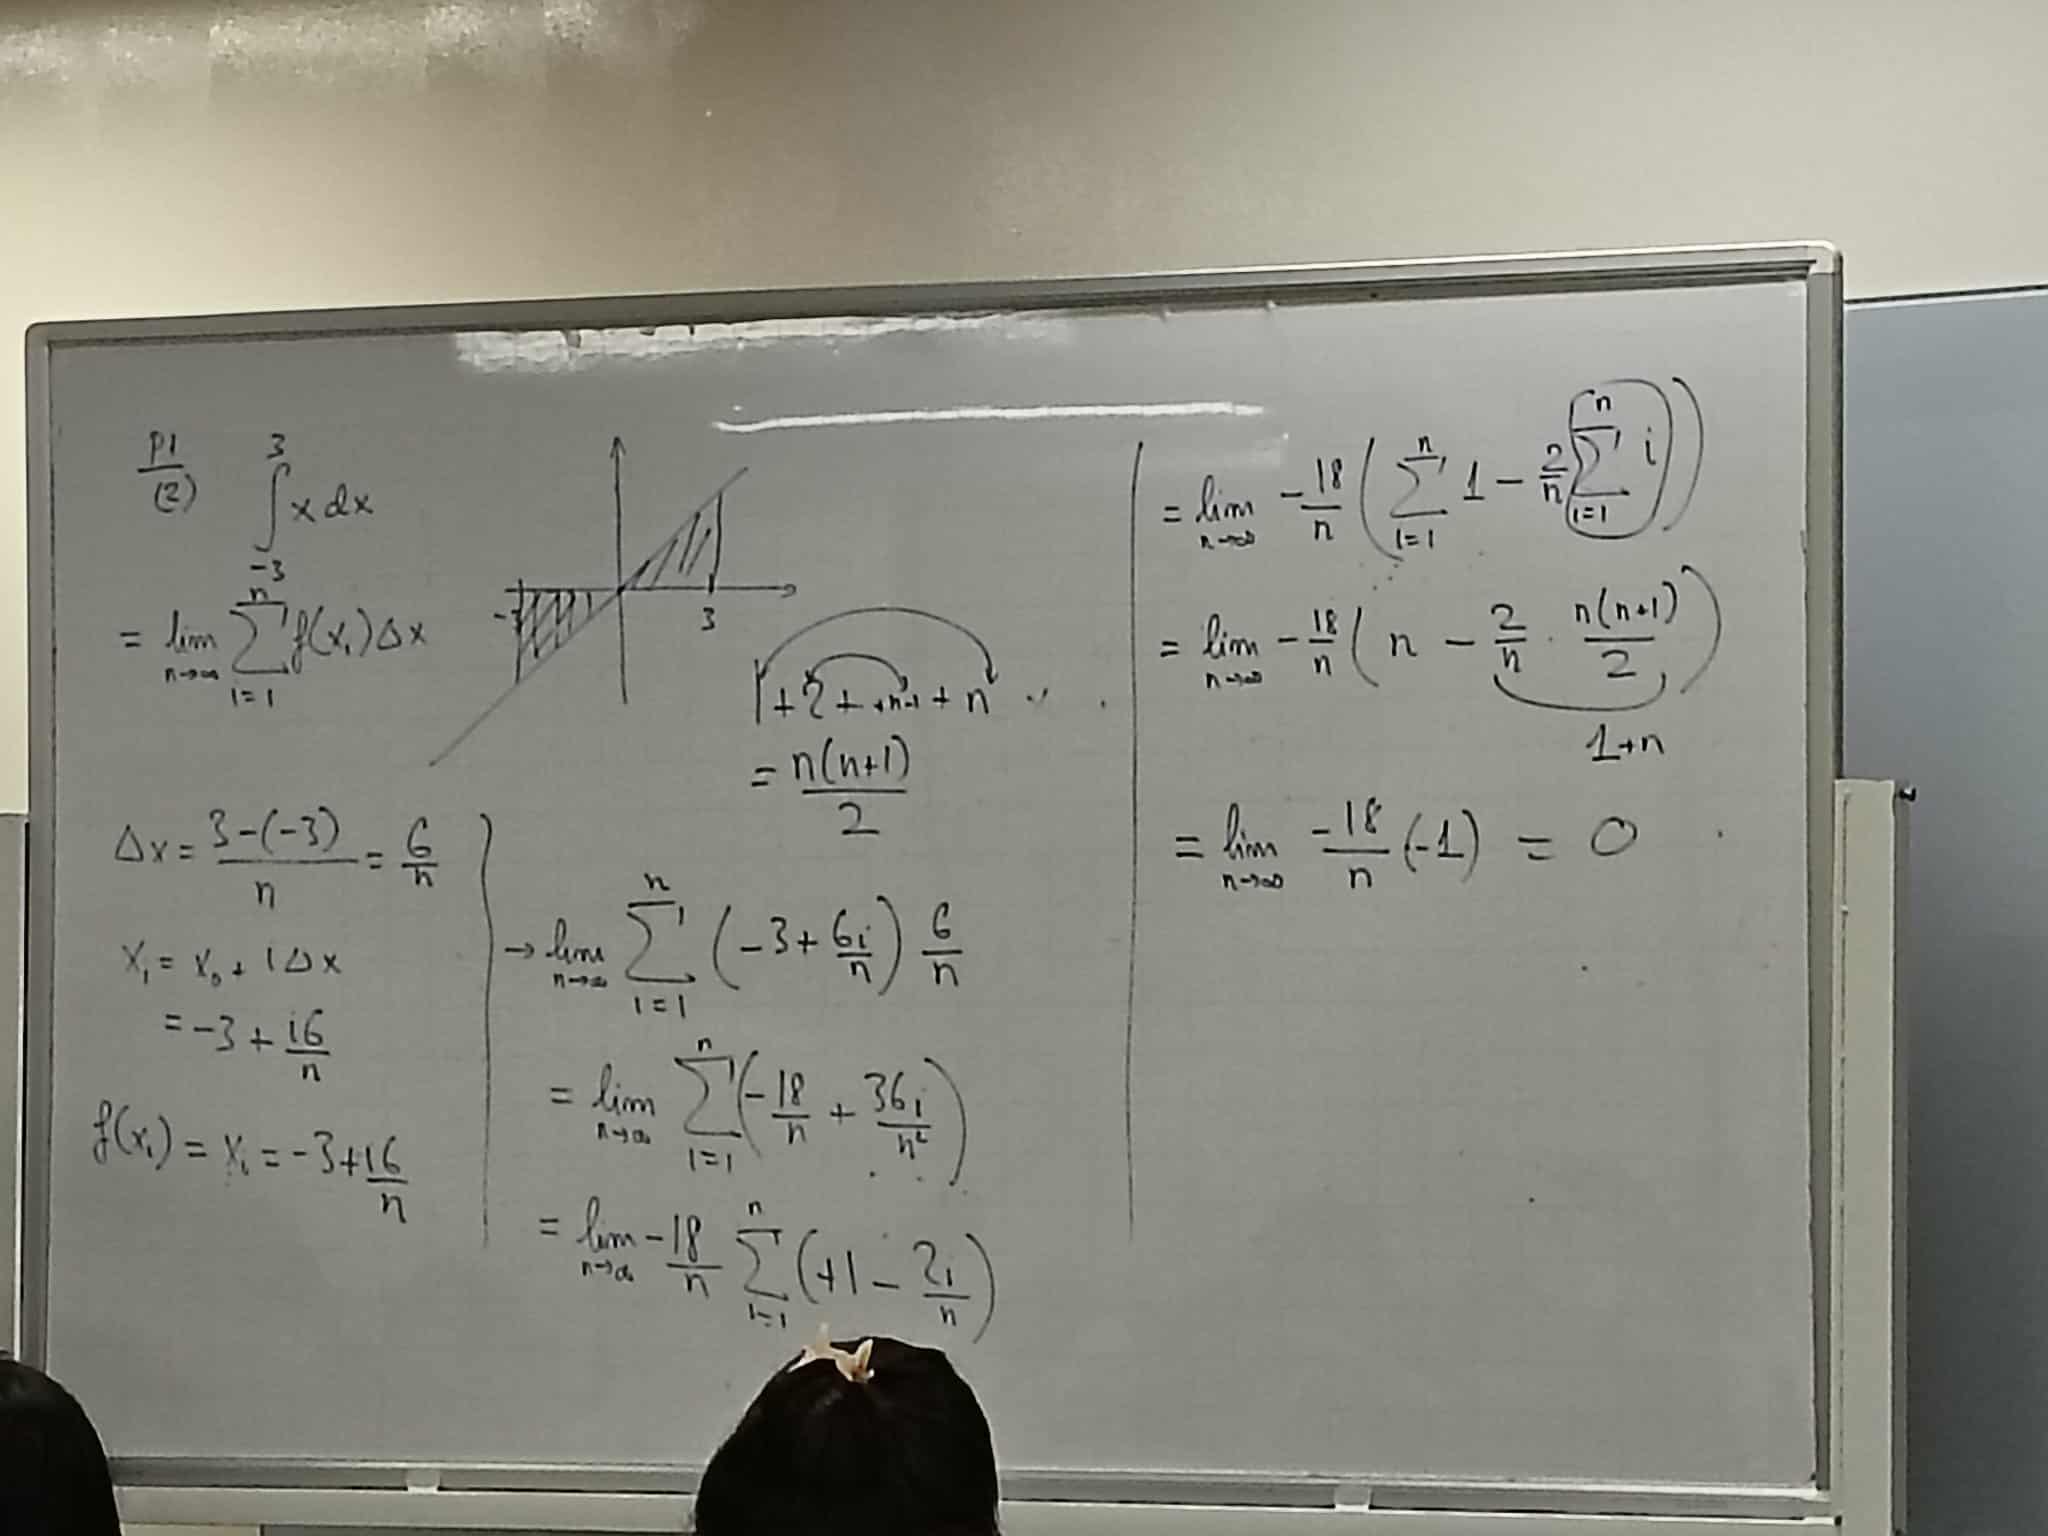 P1
(2)
∫_{-3}^{3} x dx
= lim_{n→∞} Σ_{i=1}^{n} f(x_i) Δx
-3 3
1+2+..+n-1+n
= n(n+1)/2
Δx = (3-(-3))/n = 6/n
x_i = x_0 + iΔx
= -3 + i6/n
f(x_i) = x_i = -3 + i6/n
→ lim_{n→∞} Σ_{i=1}^{n} (-3 + 6i/n) 6/n
= lim_{n→∞} Σ_{i=1}^{n} (-18/n + 36i/n²)
= lim_{n→∞} -18/n Σ_{i=1}^{n} (+1 - 2i/n)
= lim_{n→∞} -18/n (Σ_{i=1}^{n} 1 - 2/n Σ_{i=1}^{n} i)
= lim_{n→∞} -18/n (n - 2/n · n(n+1)/2)
1+n
= lim_{n→∞} -18/n (-1) = 0